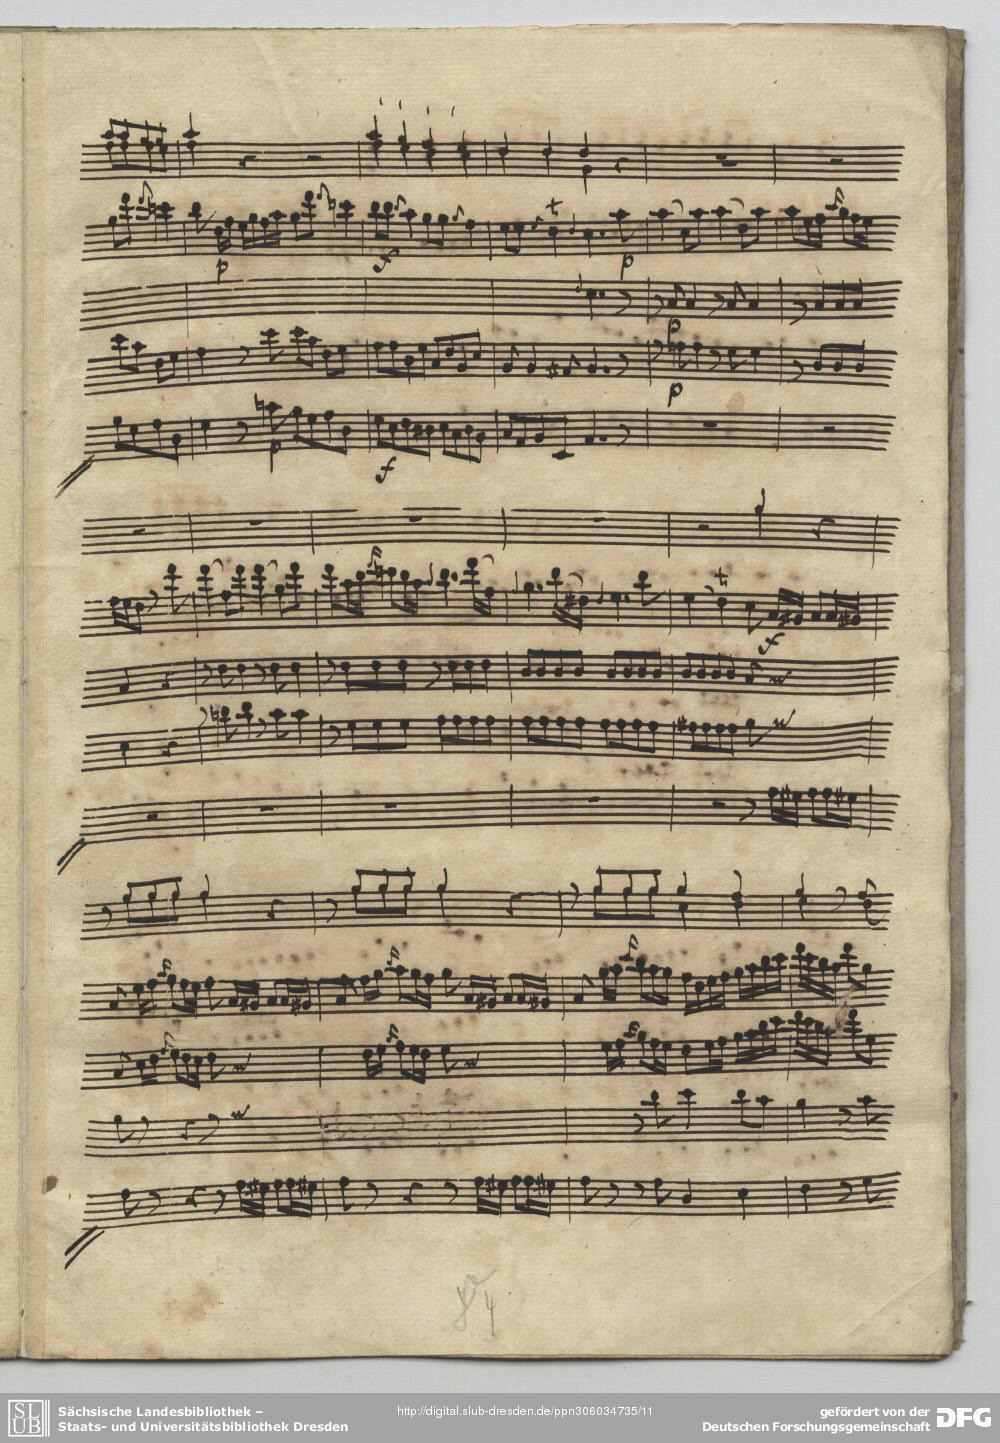 p
p
p
p
p
f
4
SLUB
Sächsische Landesbibliothek –
Staats- und Universitätsbibliothek Dresden
http://digital.slub-dresden.de/ppn306034735/11
gefördert von der
Deutschen Forschungsgemeinschaft
DFG